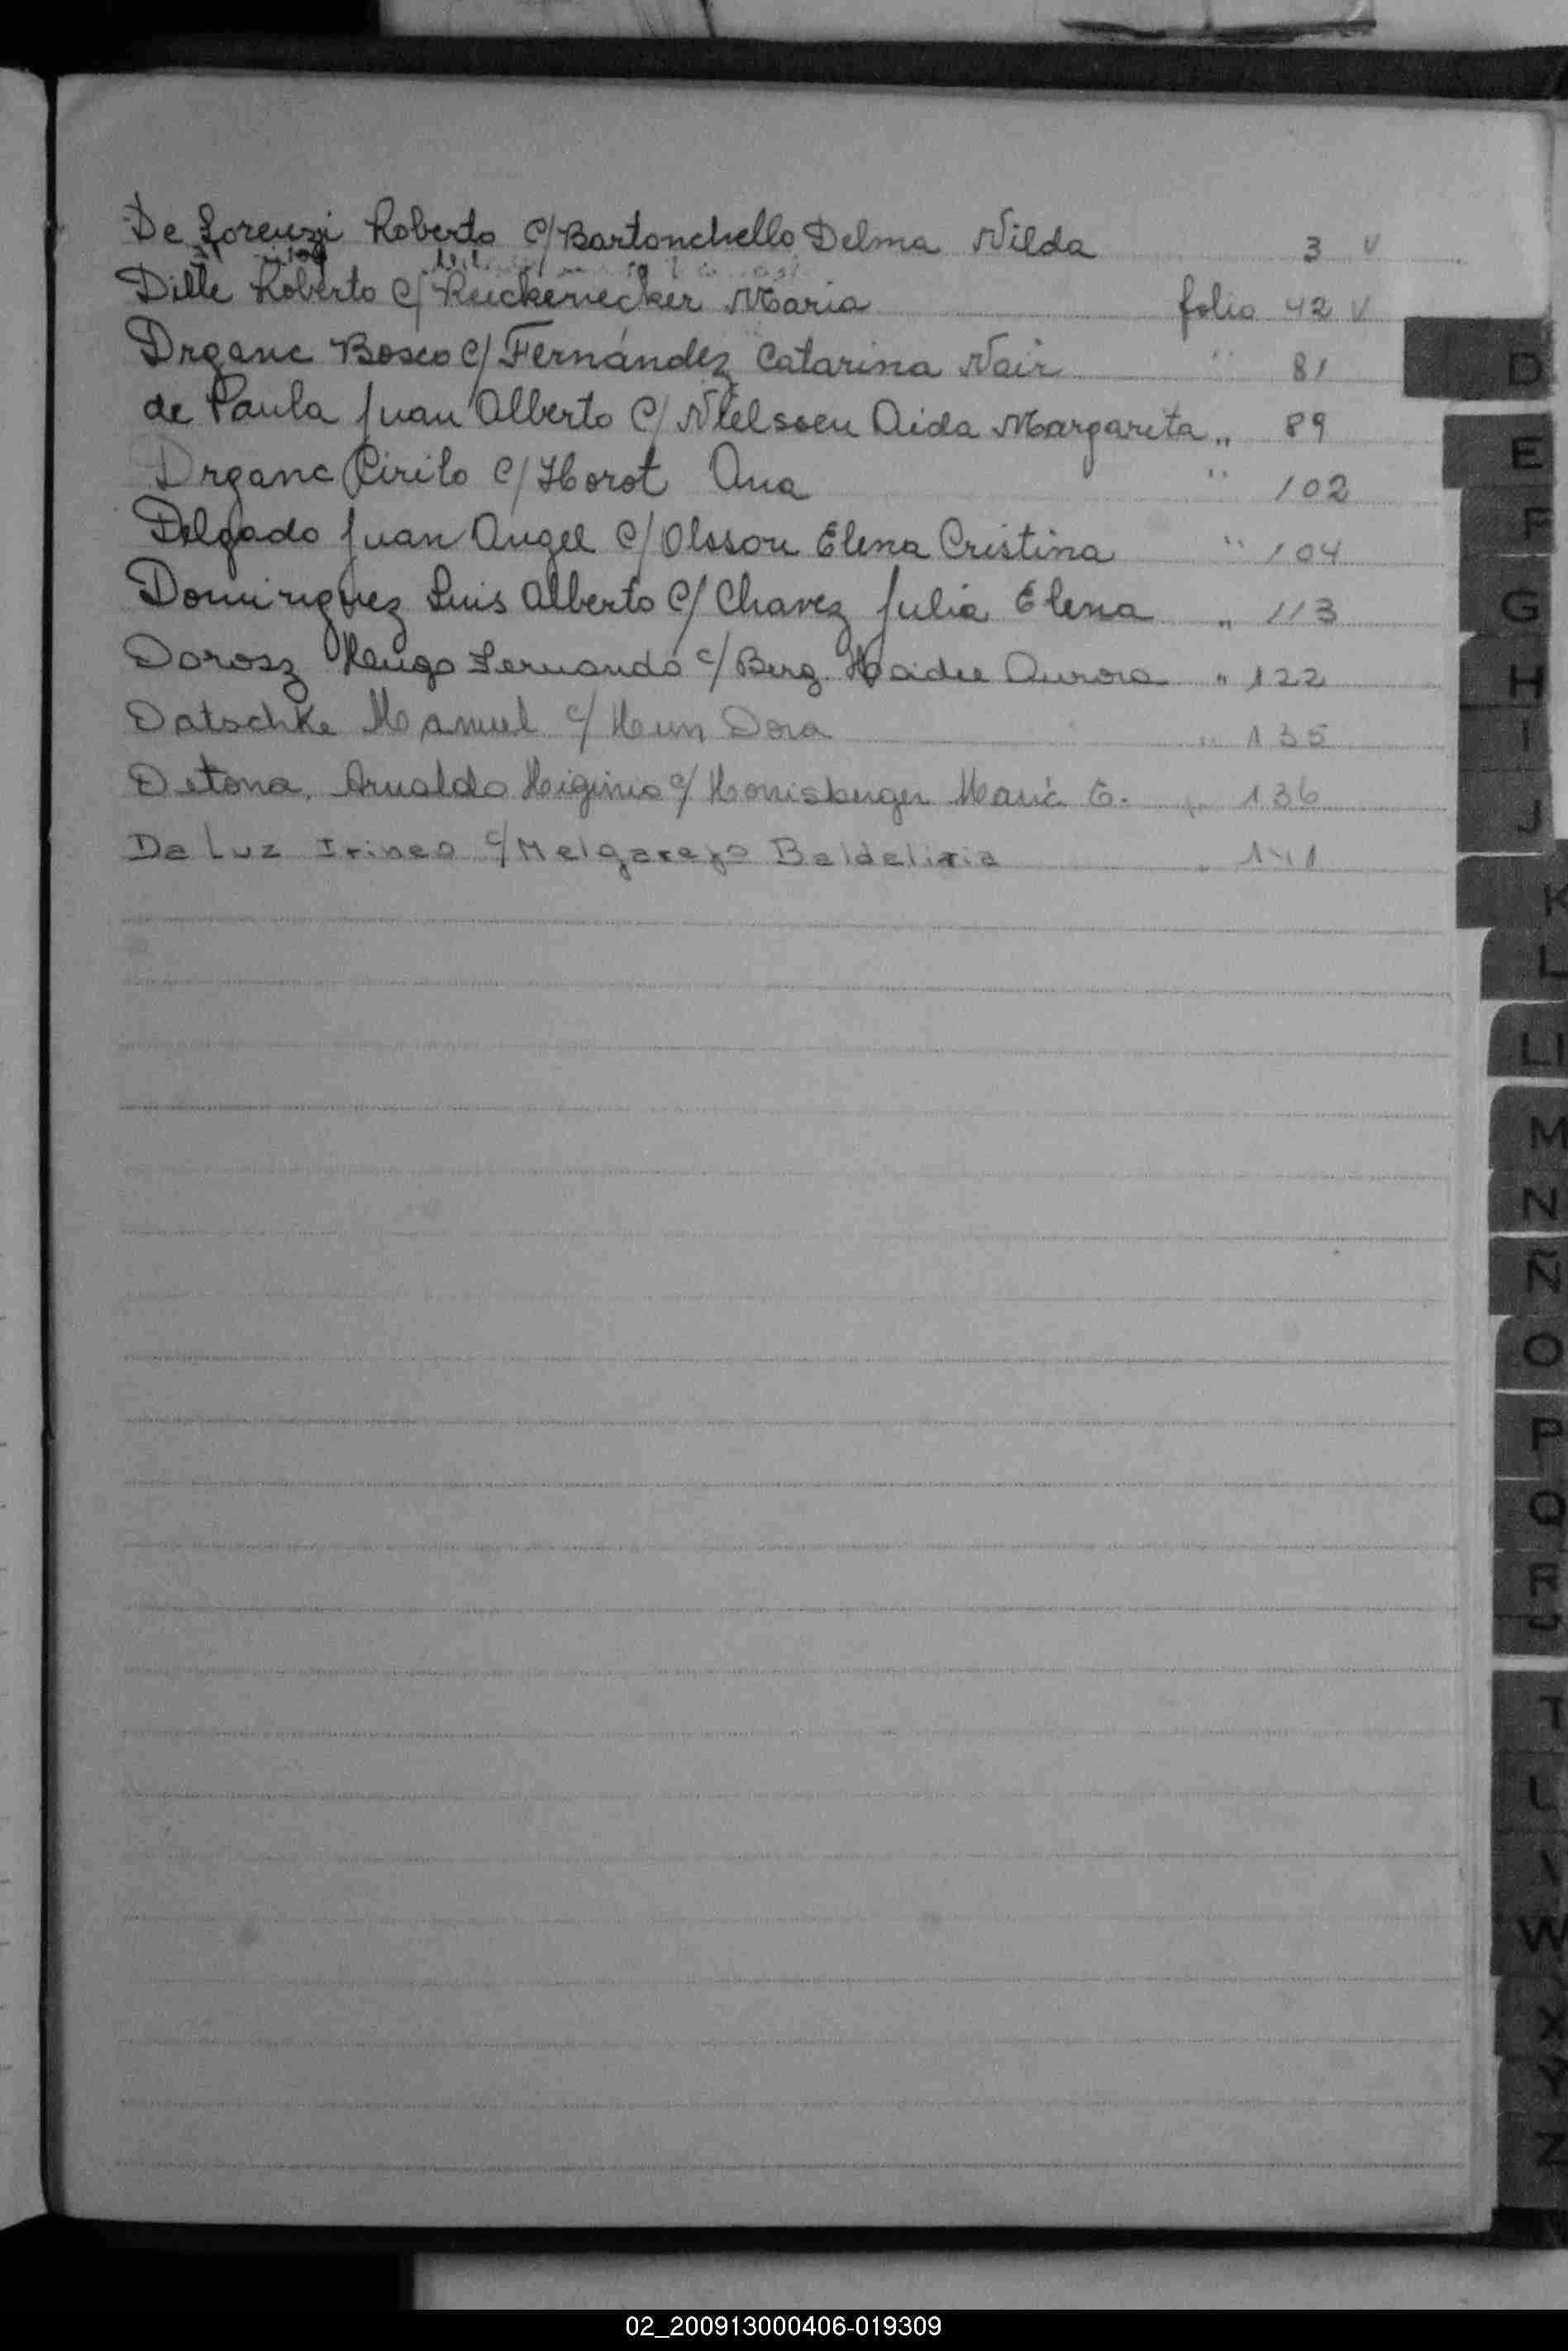 De Lorenzi Roberto c/ Bartonchello Delma Nilda 3 v
Dille Roberto c/ Reickenecker Maria folio 42 v
Drganc Bosco c/ Fernández Catarina Nair " 81
de Paula Juan Alberto c/ Nielssen Aida Margarita " 89
Drganc Cirilo c/ Horot Ana " 102
Delgado Juan Angel c/ Olsson Elena Cristina " 104
Dominguez Luis Alberto c/ Chavez Julia Elena " 113
Dorosz Hugo Fernando c/ Berg Haidee Aurora " 122
Datschke Manuel c/ Hein Dora " 135
Detona, Arnaldo Higinio c/ Honisberger María E. " 136
De Luz Irineo c/ Melgarejo Baldeliria " 141
D
E
F
G
H
I
J
K
L
Ll
M
N
Ñ
O
P
Q
R
T
W
X
Y
Z
02_200913000406-019309